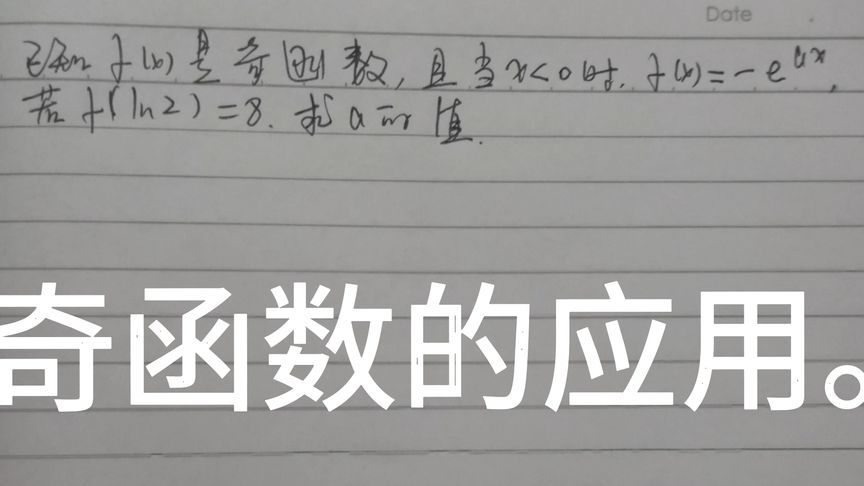 Date
已知f(x)是奇函数,且当x<0时.f(x)=-e^{ax},
若f(ln2)=8.求a的值.
奇函数的应用。